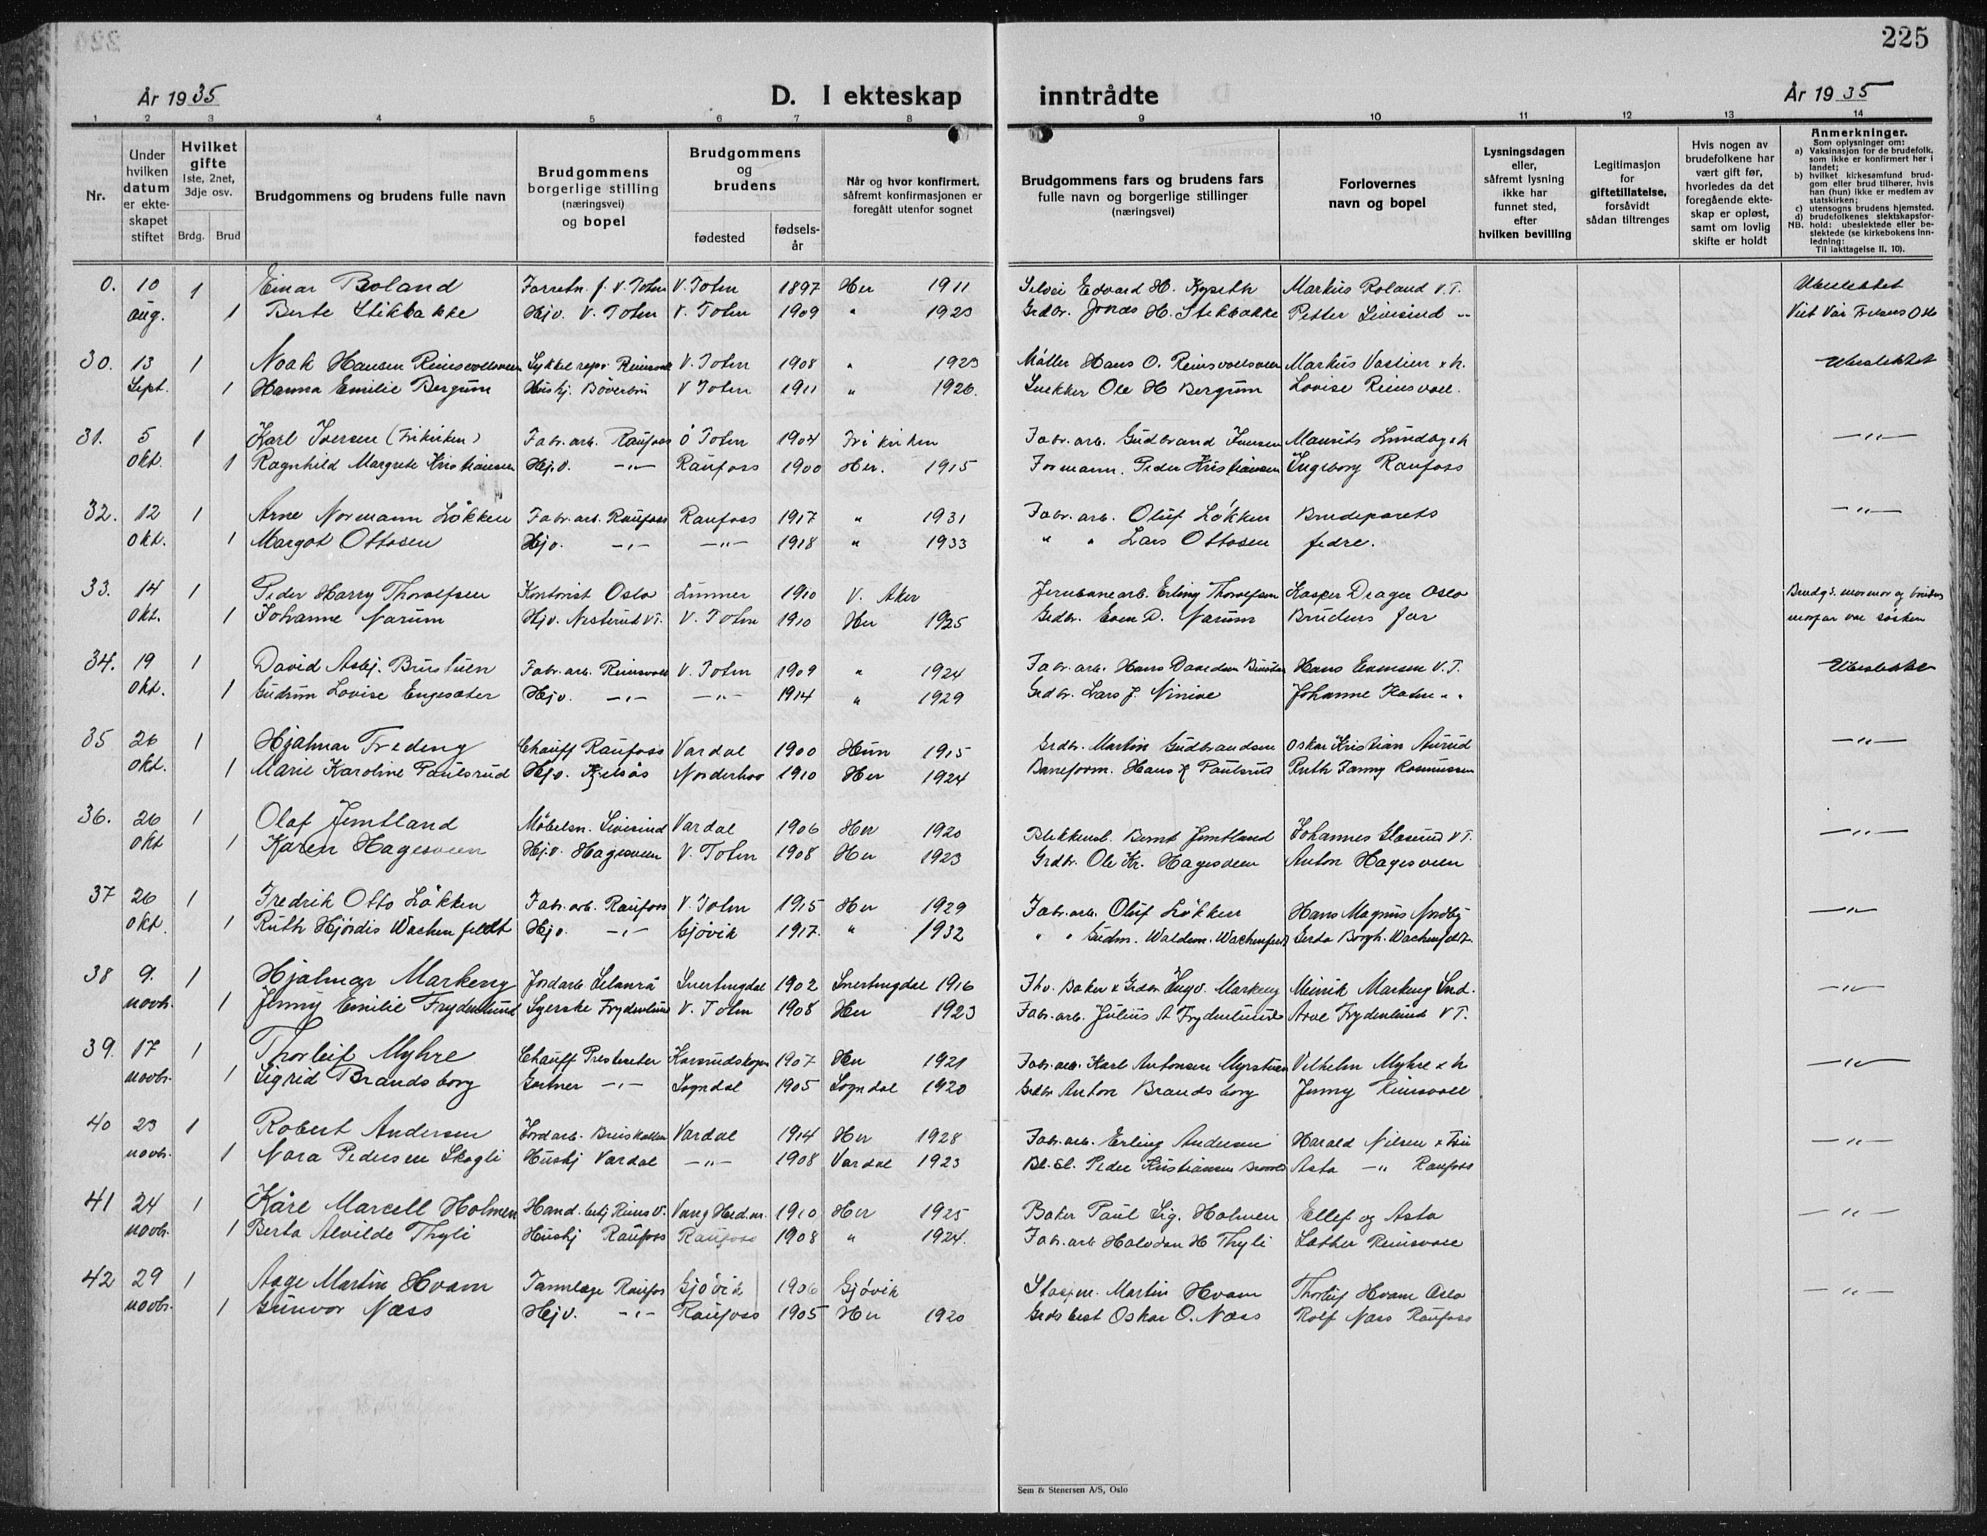 225
År 1935 D. I ekteskap inntrådte År 1935
1 2 3 4 5 6 7 8 9 10 11 12 13 14
Nr.
Under hvilken datum er ekteskapet stiftet
Hvilket gifte 1ste, 2net, 3dje osv.
Brdg. Brud
Brudgommens og brudens fulle navn
Brudgommens borgerlige stilling (næringsvei) og bopel
Brudgommens og brudens
fødested fødselsår
Når og hvor konfirmert, såfremt konfirmasjonen er foregått utenfor sognet
Brudgommens fars og brudens fars fulle navn og borgerlige stillinger (næringsvei)
Forlovernes navn og bopel
Lysningsdagen eller, såfremt lysning ikke har funnet sted, efter hvilken bevilling
Legitimasjon for giftetillatelse, forsåvidt sådan tiltrenges
Hvis nogen av brudefolkene har vært gift før, hvorledes da det foregående ekteskap er opløst, samt om lovlig skifte er holdt
Anmerkninger.
Som oplysninger om:
a) Vaksinasjon for de brudefolk, som ikke er konfirmert her i landet;
b) hvilket kirkesamfund brudgom eller brud tilhører, hvis han (hun) ikke er medlem av statskirken;
c) utensogns brudens hjemsted.
d) brudefolkenes slektskapsforhold: ubeslektede eller beslektede (se kirkebokens Innledning:
NB.
Til iakttagelse II. 10).
0. 10 1 Einar Roland Forretn. f. V. Toten V. Toten 1897 Her 1911 Edvard H. Markus Roland V.T. Ubeslektet
aug. 1 Berte Stikbakke Hjv. V. Toten V. Toten 1909 " 1923 Grdbr. Jonas H. Stikbakke Petter Livisind
30. 13 1 Noak Hansen Reinsvollsveen Sykkelrepr. Reinsvoll V. Toten 1908 " 1923 Møller Hans O. Reinsvollsveen Markus Ubeslektet
Sept. 1 Hanna Emilie Bergum Hushj. Bøverbru V Toten 1911 " 1926. Snekker Ole H Bergum Lovise Reinsvoll.
31. 5 1 Karl Iversen (Frikirken) Fabr. arb. Raufoss Ø Toten 1904 Frikirken Fabr. arb. Gudbrand Iversen Maurits Lundby —"—
okt. 1 Ragnhild Margrete Kristiansen Hjv. —"— Raufoss 1900 Her. 1915 Formann. Peder Kristiansen Ingeborg Raufoss
32. 12 1 Arne Normann Løkken Fabr. arb. Raufoss Raufoss 1917 " 1931 Fabr. arb. Oluf Løkken Brudeparets —"—
okt. 1 Margot Ottosen Hjv. —"— —"— 1918 " 1933 " " Lars Ottosen fedre.
33. 14 1 Peder Harry Thorolfsen Kontorist Oslo Lunner 1910 V. Aker Jernbanearb. Erling Thorolfsen Kasper Drager Oslo Brudg's mormor og brudens
okt. 1 Johanne Narum Hjv. Nesterud V.T. V. Toten 1910 Her 1925 Grdbr. Even D. Narum Brudens far morfar var søsken
34. 19 1 David Asbj. Brustuen Fabr. arb. Reinsvoll V. Toten 1909 " 1924 Fabr. arb. Hans Brustuen Hans Evensen V.T. Ubeslektet
okt. 1 Gudrun Lovise Engesæter Hjv. —"— —"— 1914 " 1929 Grdbr. Lars J. Ninive Johanne
35 26 1 Hjalmar Tredeng Chauff Raufoss Vardal 1900 Hun 1915 Grdbr. Martin Gudbrandsen Oskar Kristian Aurud —"—
okt. 1 Marie Karoline Paulsrud Hjv. Kjelsås Norderhov 1910 Her 1924 Baneform. Hans Paulsrud Ruth Fanny Rasmussen
36. 26 1 Olaf Jemtland Møbelsn. Livisind Vardal 1906 Her 1920 Blikkensl. Bernt Jemtland Johannes Glæserud V.T. —"—
okt 1 Karen Hagesveen Hjv. Hagesveen V. Toten 1908 Her 1923 Grdbr. Ole Kr. Hagesveen Anton Hagesveen
37 26 1 Fredrik Otto Løkken Fabr. arb. Raufoss V. Toten 1915 Her 1929 Fabr. arb. Oluf Løkken Hans Magnus —"—
okt. 1 Ruth Hjørdis Wachenfeldt Hjv. —"— Gjøvik 1917. " 1932 " " Gudm. Waldem. Wachenfeldt Gerda Borgh. Wachenfeldt
38 9. 1 Hjalmar Markeng Jordarb. Snertingdal 1902 Snertingdal 1916 Fhv. Baker & Grdbr. Ingv. Markeng Meinik Markeng Snd. —"—
novbr. 1 Jenny Emilie Frydenlund Syerske Frydenlund V. Toten 1908 Her 1923 Fabr. arb. Julius A Frydenlund Arve Frydenlund V T.
39. 17 1 Thorleif Myhre Chauff Presteseter Korsrudskogen 1907 Her 1921 Fabr. arb. Karl Antonsen Myrstuen Vilhelm Myhre —"—
novbr. 1 Sigrid Brandsborg Gartner —"— Sogndal 1905 Sogndal 1920 Grdbr Anton Brandsborg Jenny Reinsvoll
40 23 1 Robert Andersen Jordarb. Vardal 1914 Her 1928 Fabr. arb. Erling Andersen Harald Nilsen —"—
novbr. 1 Nora Pedersen Skogli Hushj Vardal —"— 1908 Vardal 1923 Peder Kristiansen Asta —"— Raufoss
41 24 1 Kåre Marcell Holmen Hand. betj Reinsv. Vang Hedm. 1910 Her 1925 Baker Paul Sig. Holmen Ellef og Asta —"—
novbr. 1 Berta Alvilde Thyli Hushj Raufoss Raufoss 1908 " 1924. Fabr. arb Halvdan H Thyli Sæther Reinsvoll
42 29 1 Aage Martin Hvam Tannlæge Raufoss Gjøvik 1906 Gjøvik Martin Hvam Thorleif Hvam Oslo —"—
novbr. 1 Gunvor Næss Hjv. —"— Raufoss 1905 Her 1920 Oskar O. Næss Rolf Næss Raufoss
Sem & Stenersen A/S, Oslo